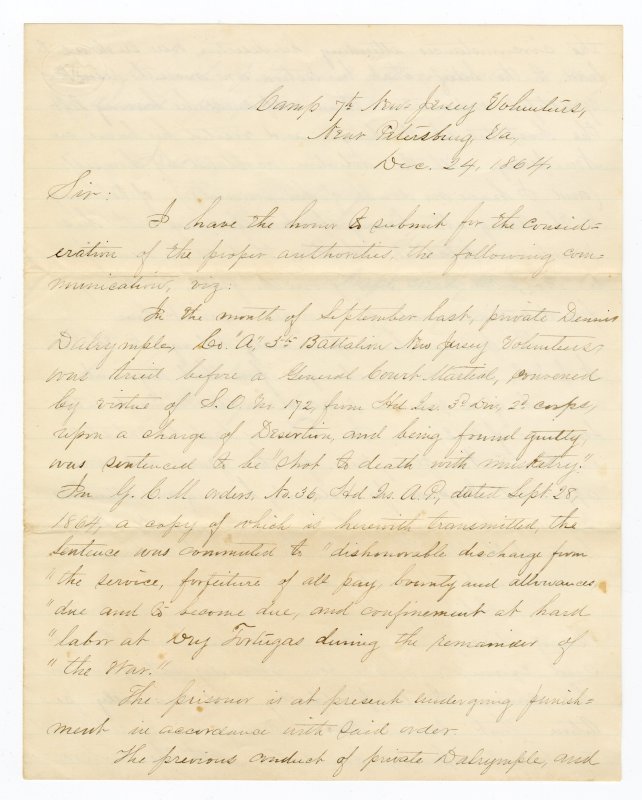 Camp 7th New Jersey Volunteers,
Near Petersburg, Va,
Dec. 24, 1864.
Sir:
I have the honor to submit for the consid=
eration of the proper authorities, the following com=
munication, viz:
In the month of September last, private Dennis
Dalrymple, Co. "A," 5th Battalion New Jersey Volunteers,
was tried before a General Court Martial, convened
by virtue of S. O. No. 172, from Hd Qrs. 3d Div, 2d Corps,
upon a charge of Desertion, and being found guilty,
was sentenced to be "shot to death with musketry."
In G. C. M. orders, No. 36, Hd Qrs. A. P., dated Sept. 28,
1864, a copy of which is herewith transmitted, the
sentence was commuted to "dishonorable discharge from
"the service, forfeiture of all pay, bounty and allowances
"due and to become due, and confinement at hard
"labor at Dry Tortugas during the remainder of
"the War."
The prisoner is at present undergoing punish=
ment in accordance with said order.
The previous conduct of private Dalrymple, and